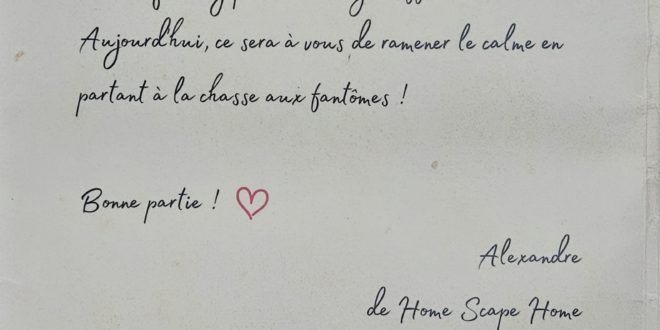 Aujourd'hui, ce sera à vous de ramener le calme en
partant à la chasse aux fantômes !
Bonne partie !
Alexandre
de Home Scape Home